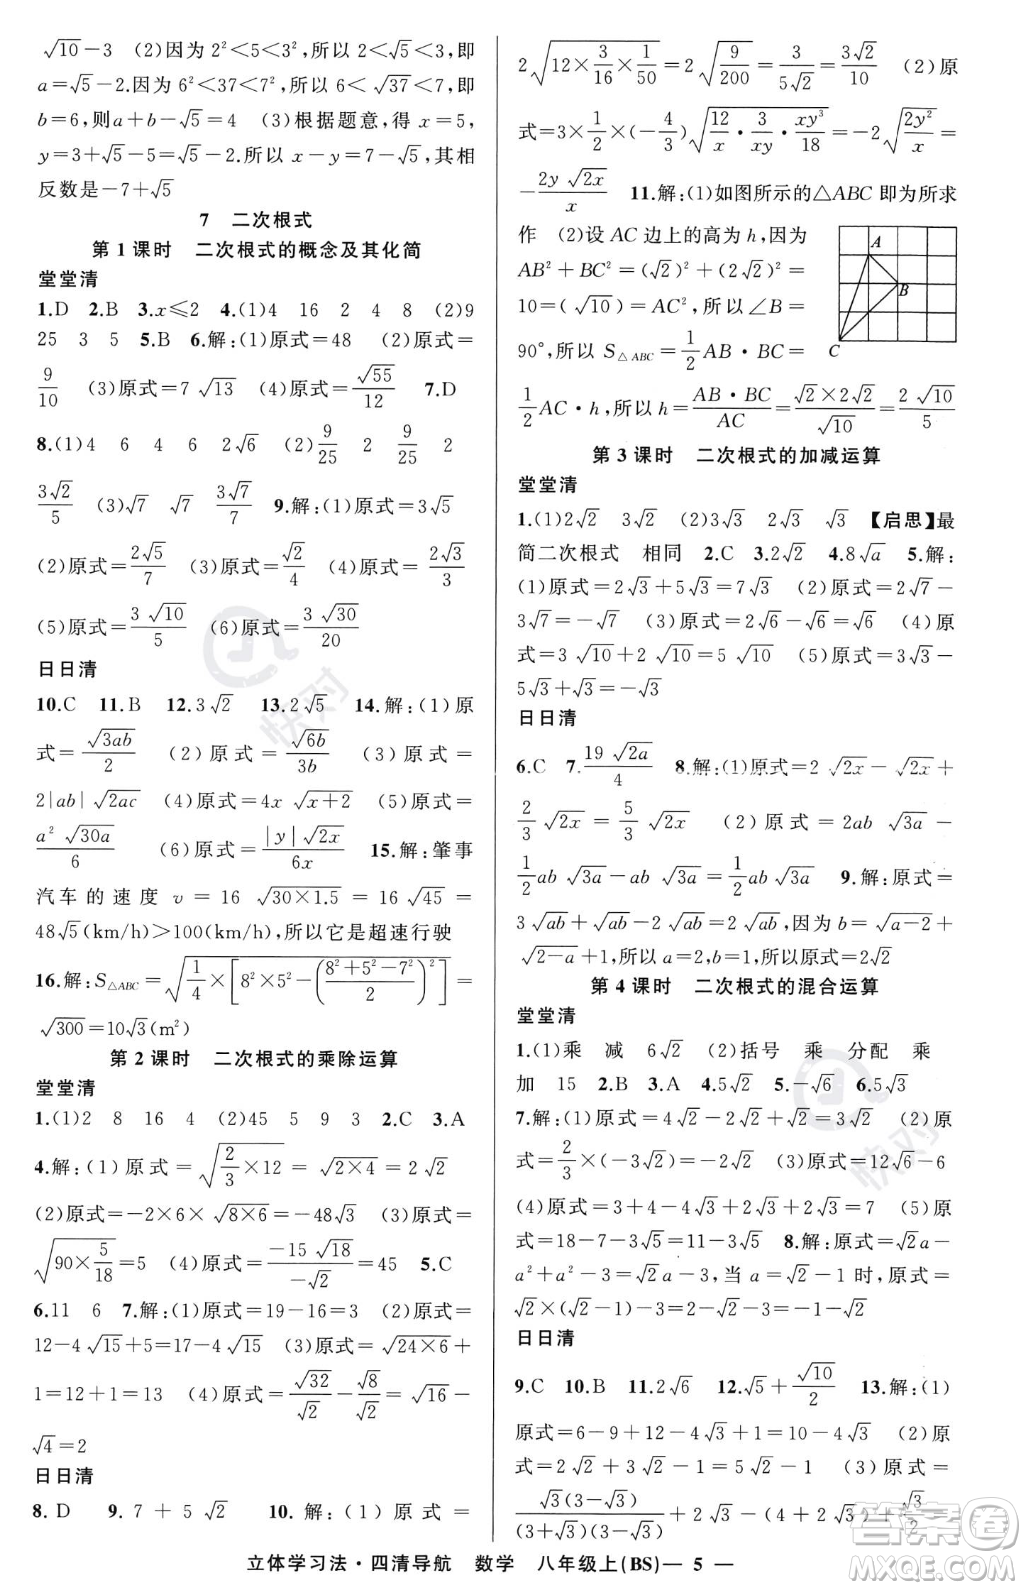 √10－3　(2)因为 2²＜5＜3²，所以 2＜√5＜3，即
a＝√5－2.因为 6²＜37＜7²，所以 6＜√37＜7，即
b＝6，则a＋b－√5＝4　(3)根据题意，得 x＝5，
y＝3＋√5－5＝√5－2.所以 x－y＝7－√5，其相
反数是－7＋√5
7　二次根式
第 1 课时　二次根式的概念及其化简
堂堂清
1.D　2.B　3.x≤2　4.(1)4　16　2　4　8　(2)9
25　3　5　5.B　6.解：(1)原式＝48　(2)原式＝
9/10　(3)原式＝7√13　(4)原式＝√55/12　7.D
8.(1)4　6　4　6　2√6　(2)9/25　2　9/25　2
3√2/5　(3)√7　√7　3√7/7　9.解：(1)原式＝3√5
(2)原式＝2√5/7　(3)原式＝√2/4　(4)原式＝2√3/3
(5)原式＝3√10/5　(6)原式＝3√30/20
日日清
10.C　11.B　12.3√2　13.2√5　14.解：(1)原
式＝√3ab/2　(2)原式＝√6b/3b　(3)原式＝
2|ab|√2ac　(4)原式＝4x√x＋2　(5)原式＝
a²√30a/6　(6)原式＝|y|√2x/6x　15.解：肇事
汽车的速度 v＝16√30×1.5＝16√45＝
48√5(km/h)＞100(km/h)，所以它是超速行驶
16.解：S△ABC＝√1/4×[8²×5²－((8²＋5²－7²)/2)²]＝
√300＝10√3(m²)
第 2 课时　二次根式的乘除运算
堂堂清
1.(1)2　8　16　4　(2)45　5　9　3　2.C　3.A
4.解：(1)原式＝√(2/3×12)＝√(2×4)＝2√2
(2)原式＝－2×6×√(8×6)＝－48√3　(3)原式＝
√(90×5/18)＝5　(4)原式＝－15√18/－√2＝45　5.C
6.11　6　7.解：(1)原式＝19－16＝3　(2)原式＝
12－4√15＋5＝17－4√15　(3)原式＝√(24×6)＋
1＝12＋1＝13　(4)原式＝√32/√2－√8/√2＝√16－
√4＝2
日日清
8.D　9.7＋5√2　10.解：(1)原式＝
2√(12×3/16×1/50)＝2√(9/200)＝3/5√2＝3√2/10　(2)原
式＝3×1/2×(－4/3)√(12/x·3/xy·xy³/18)＝－2√(2y²/x)＝
－2y√2x/x　11.解：(1)如图所示的△ABC 即为所求
作　(2)设 AC 边上的高为 h，因为
AB²＋BC²＝(√2)²＋(2√2)²＝
10＝(√10)²＝AC²，所以∠B＝
90°，所以 S△ABC＝1/2AB·BC＝
1/2AC·h，所以 h＝AB·BC/AC＝√2×2√2/√10＝2√10/5
A
B
C
第 3 课时　二次根式的加减运算
堂堂清
1.(1)2√2　3√2　(2)3√3　2√3　√3　【启思】最
简二次根式　相同　2.C　3.2√2　4.8√a　5.解：
(1)原式＝2√3＋5√3＝7√3　(2)原式＝2√7－
3√7＝－√7　(3)原式＝2√6－√6＝√6　(4)原
式＝3√10＋2√10＝5√10　(5)原式＝3√3－
5√3＋√3＝－√3
日日清
6.C　7.19√2a/4　8.解：(1)原式＝2√2x－√2x＋
2/3√2x＝5/3√2x　(2)原式＝2ab√3a－
1/2ab√3a－ab√3a＝1/2ab√3a　9.解：原式＝
3√ab＋√ab－2√ab＝2√ab，因为 b＝√a－2＋
√2－a＋1，所以 a＝2，b＝1，所以原式＝2√2
第 4 课时　二次根式的混合运算
堂堂清
1.(1)乘　减　6√2　(2)括号　乘　分配　乘
加　15　2.B　3.A　4.5√2　5.－√6　6.5√5
7.解：(1)原式＝4√2－2√2＋√2＝3√2　(2)原
式＝2/3×(－3√2)＝－2√2　(3)原式＝12√6－6
(4)原式＝3＋4－4√3＋4√3＝7　(5)原
式＝18－7－5－2√3－1＝5－2√3　8.解：原式＝√2a－
a²＋a²－3＝√2a－3，当 a＝√2－1时，原式＝
√2×(√2－1)－3＝2－√2－3＝－1－√2
日日清
9.C　10.B　11.2√6　12.√5＋√10/2　13.解：(1)
原式＝6－9＋12－4√3＝9－4√3　(2)原
式＝2√3＋2√2－2√3＝2√2　(3)原式＝
√3(3－√3)/(3＋√3)(3－√3)＋2√3－4＝(√3－1)/2＋2√3－√3/2＝
立体学习法·四清导航　数学　八年级上(BS)— 5 —
快对
快对
答案圈
MXQE.COM